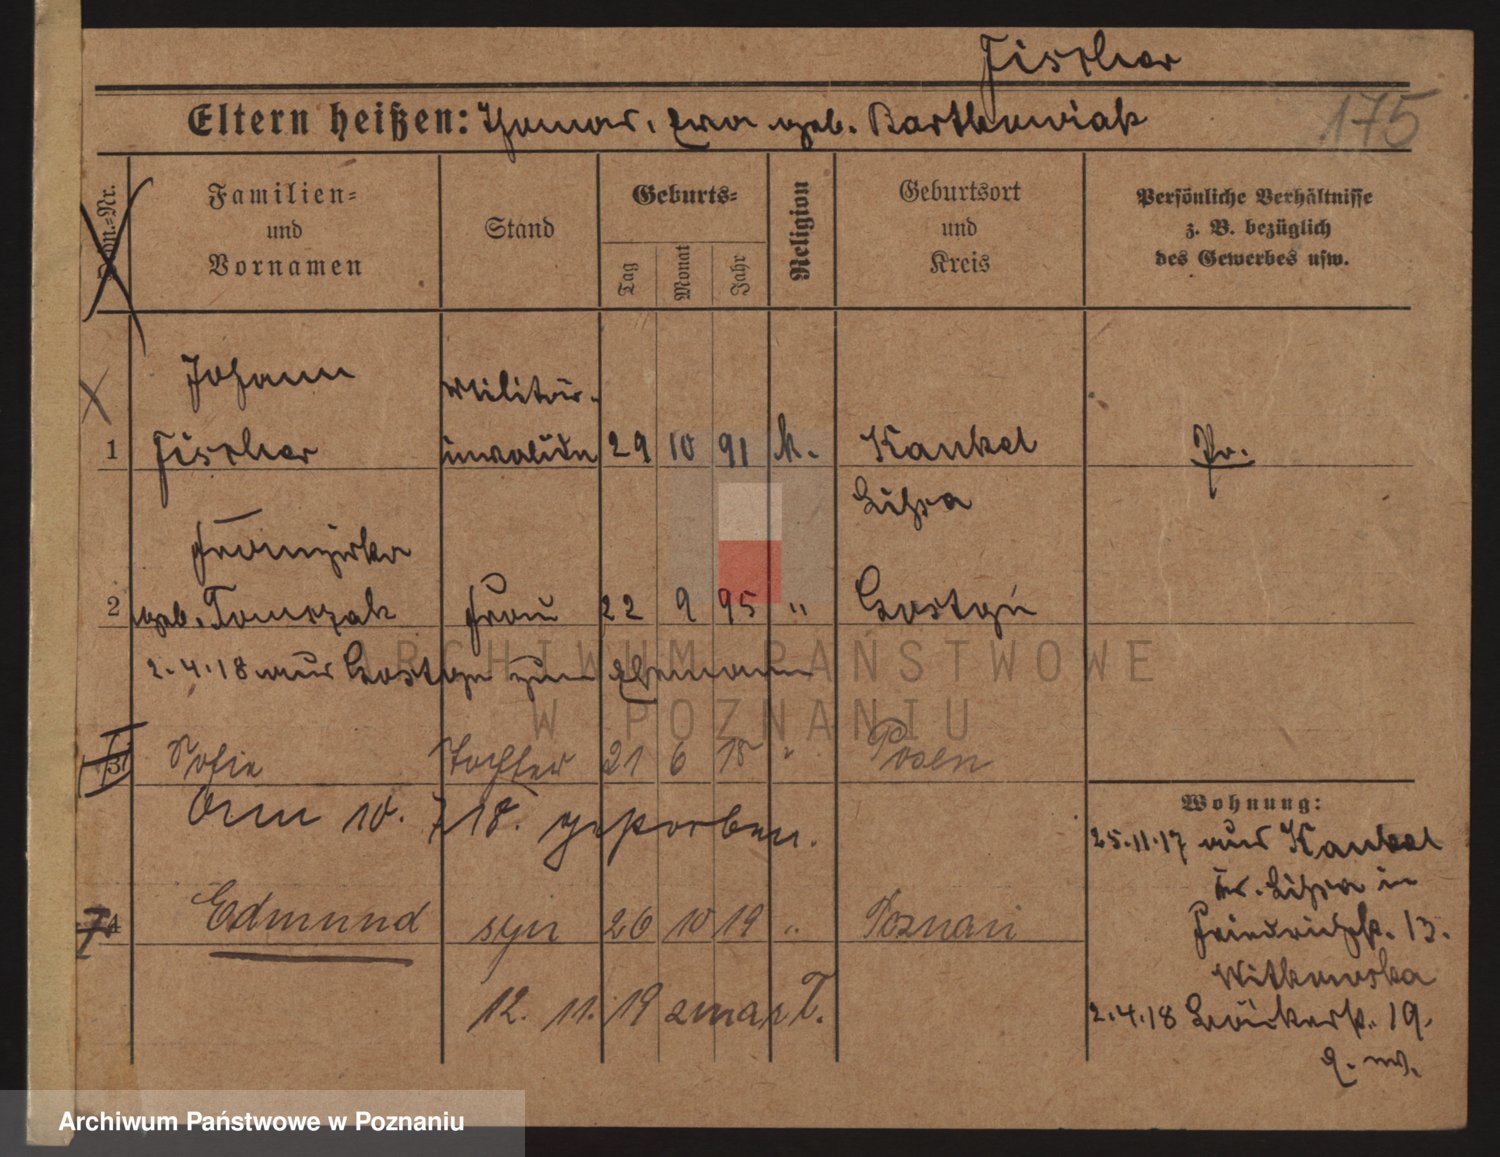 Fischer
175
Eltern heißen: Thomas, Eva geb. Bartkowiak
Familien=
und
Vornamen
Stand
Geburts=
Tag
Monat
Jahr
Religion
Geburtsort
und
Kreis
Persönliche Verhältnisse
z. B. bezüglich
des Gewerbes usw.
Johann Militär-
1 Fischer invalide 29 10 91 k. Kankel Pr.
Lissa
Franziska
2 geb. Tomczak Frau 22 9 95 " Gostyn
2.4.18 aus Gostyn zum Ehemann
3 Sofie Tochter 21 6 18 " Posen
Am 10. 7 18. gestorben.
4 Edmund syn 26 10 19 " Poznań
12. 11. 19 zmarł.
Wohnung:
25.11.17 aus Kankel
Kr. Lissa in
Friedrichstr. 13.
Witkowska
2.4.18 Bäckerstr. 19.
ARCHIWUM PAŃSTWOWE
W POZNANIU
Archiwum Państwowe w Poznaniu